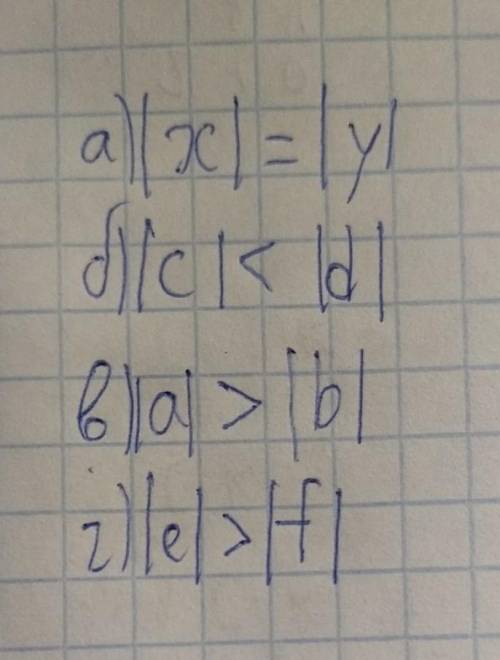 а) |x| = |y|
б) |c| < |d|
в) |a| > |b|
г) |e| > |f|